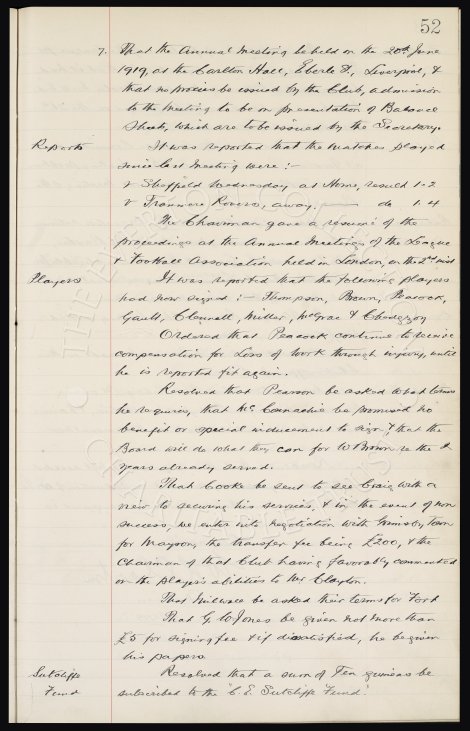 52
7. That the Annual Meeting be held on the 20th June
1919, at the Carlton Hall, Eberle St, Liverpool, &
that no proxies be issued by the Club, admission
to the Meeting to be on presentation of Balance
Sheets, which are to be issued by the Secretary.
Reports It was reported that the matches played
since last meeting were :-
v Sheffield Wednesday at Home, result 1-2
v Tranmere Rovers, away. — do 1-4
The Chairman gave a resumé of the
proceedings at the Annual Meetings of the League
& Football Association held in London, on the 2nd inst
Players It was reported that the following players
had now signed :- Thompson, Brown, Peacock,
Gault, Clennell, Miller, McGrae & Chedgzoy
Ordered that Peacock continue to receive
compensation for loss of work through injury, until
he is reported fit again.
Resolved that Pearson be asked what terms
he requires, that McConnachie be promised no
benefit or special inducement to sign, & that the
Board will do what they can for W Brown re the
years already served.
That Cooke be sent to see Craig with a
view to securing his services, & in the event of non
success, we enter into negotiation with Grimsby Town
for Mayson, the transfer fee being £200, & the
Chairman of that Club having favorably commented
on the player's abilities to Mr Clayton.
That Millwall be asked their terms for Fort
That G W Jones be given not more than
£5 for signing fee & if dissatisfied, he be given
his papers.
Sutcliffe Resolved that a sum of Ten guineas be
Fund subscribed to the "C E Sutcliffe Fund".